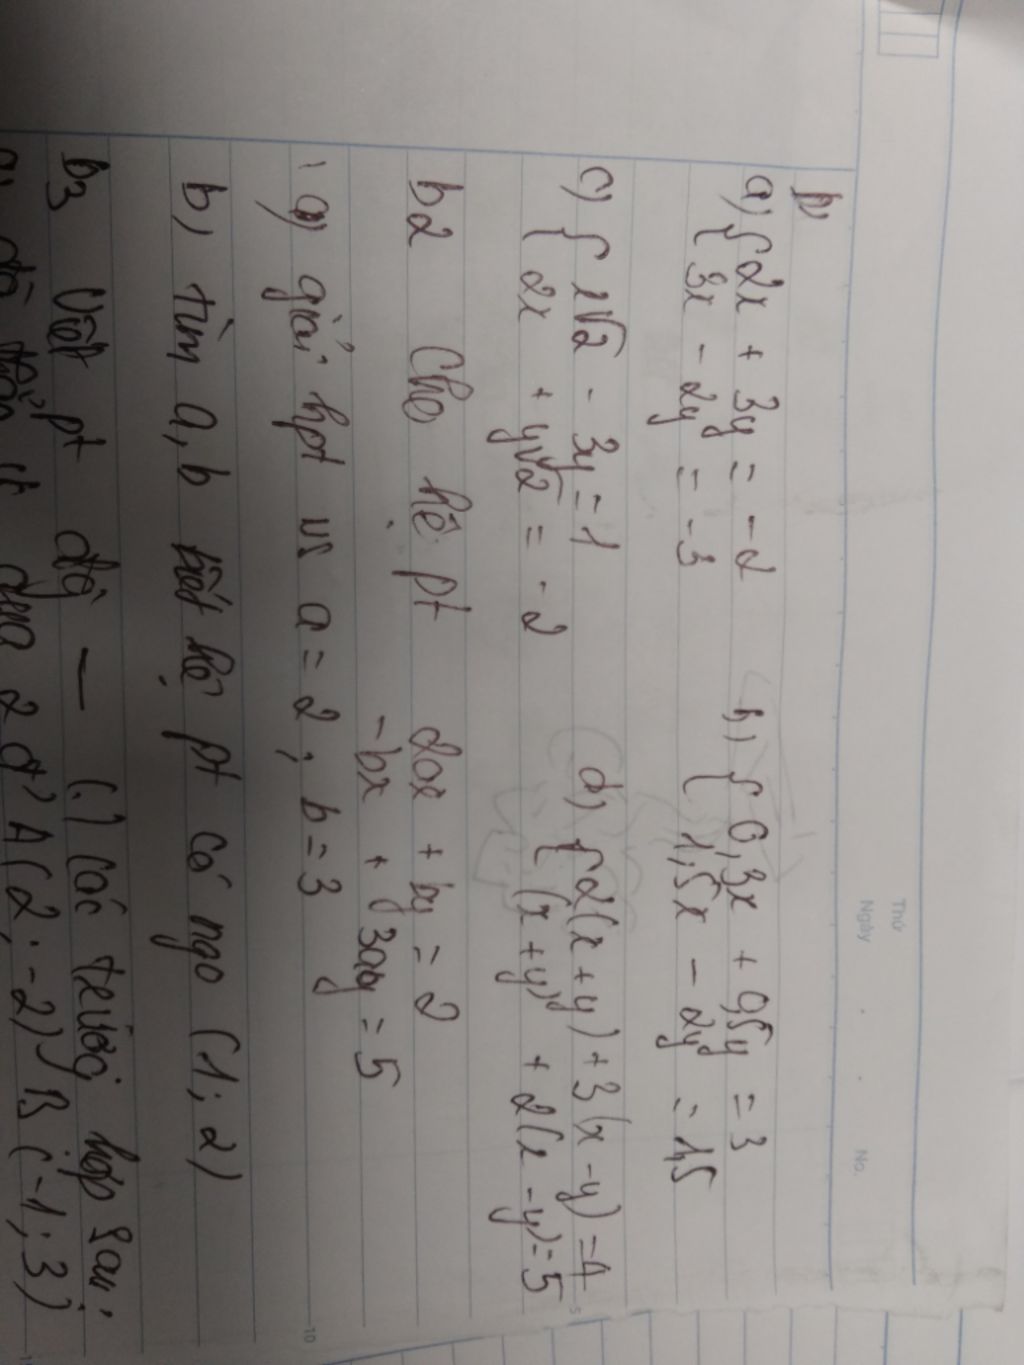 Thứ
Ngày . . No.
b1
a) { 2x + 3y = -2
3x - 2y = -3
b) { 0,3x + 0,5y = 3
1,5x - 2y = 1,5
c) { x√2 - 3y = 1
2x + y√2 = -2
d) { 2(x+y) + 3(x-y) = 4
(x+y) + 2(x-y) = 5
b2 Cho hệ pt 2ax + by = 2
-bx + 3ay = 5
a) giải hpt vs a = 2, b = 3
b, tìm a, b biết hệ pt có ngo (1; 2)
b3 Viết pt đg — (.) các trường hợp sau:
a, đồ thị đi qua 2 đ' A(2; -2) B(-1; 3)
5
10